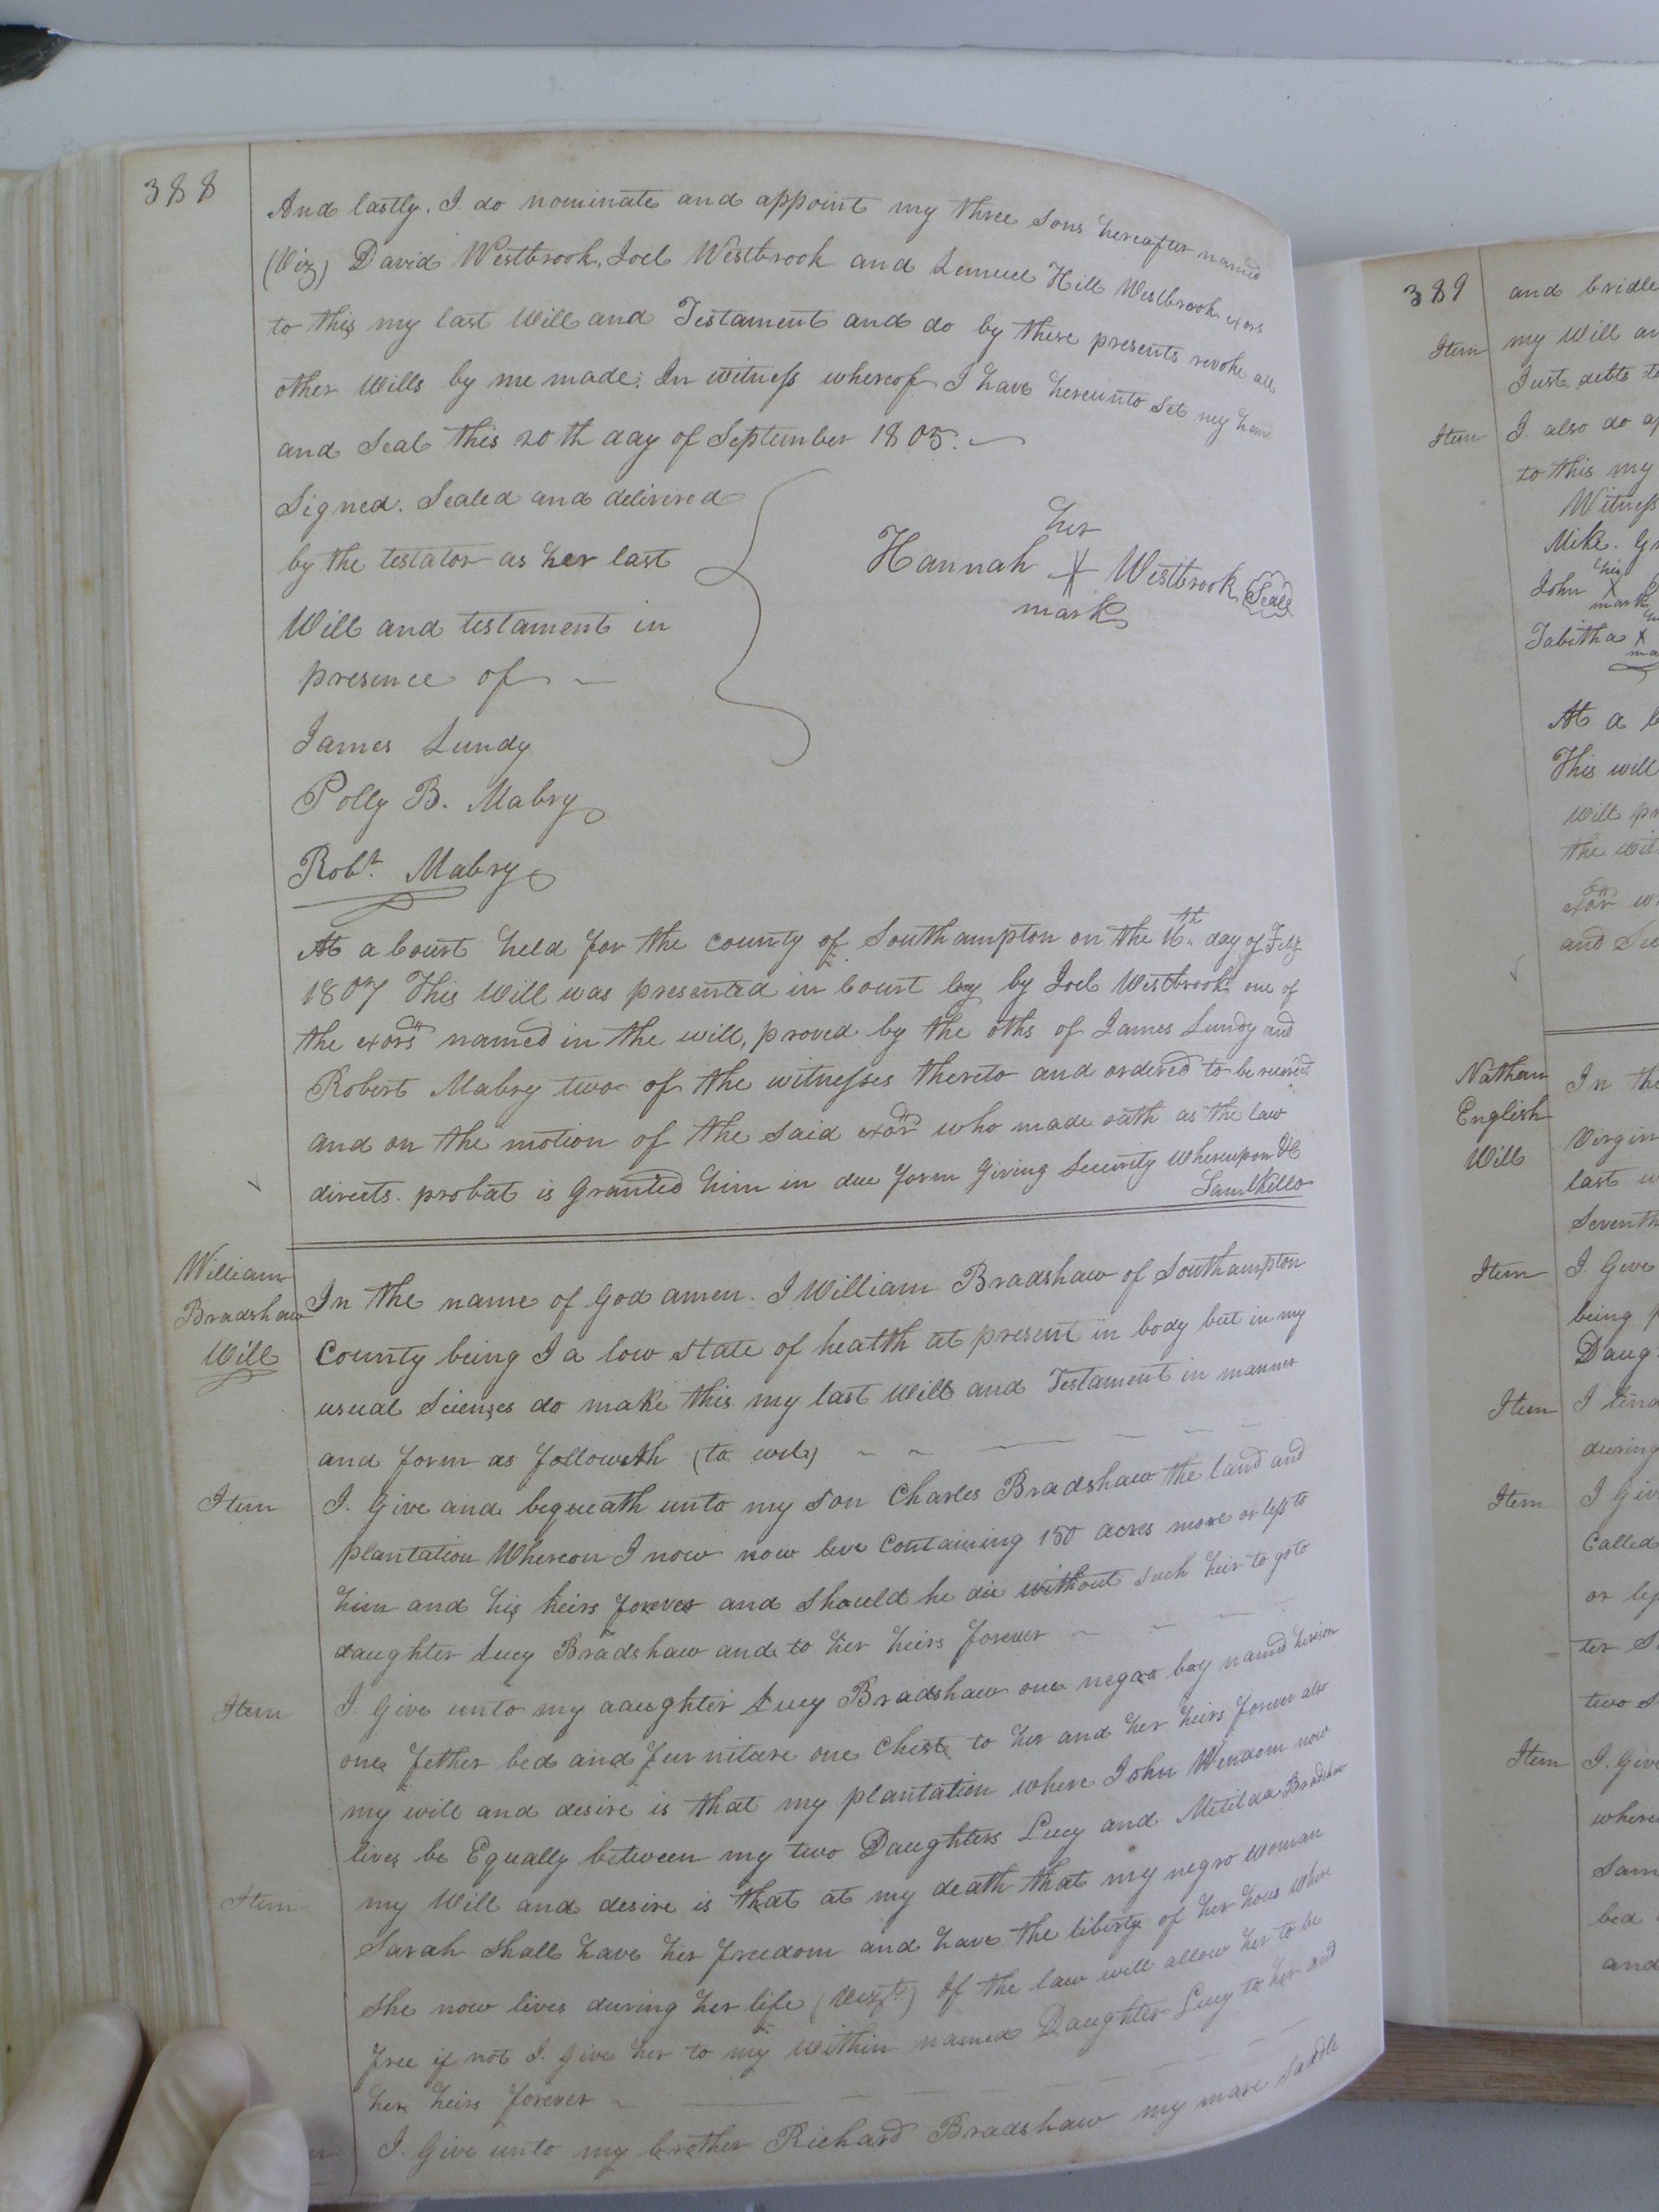 388
And lastly. I do nominate and appoint my three Sons hereafter named
(Viz) David Westbrook, Joel Westbrook and Lemuel Hill Westbrook exors
to this my last Will and Testament and do by these presents revoke all
other Wills by me made. In witness whereof I have hereunto Set my hand
and Seal this 20th day of September 1805.
Signed. Sealed and delivered
by the testator as her last
Will and testament in
presence of
her
Hannah X Westbrook Seal
mark
James Lundy
Polly B. Mabry
Robt. Mabry
At a Court held for the county of Southampton on the 16th day of Feby
1807 This Will was presented in Court by by Joel Westbrook one of
the exors named in the will, proved by the oths of James Lundy and
Robert Mabry two of the witnesses thereto and ordered to be recorded
and on the motion of the said exor who made oath as the law
directs. probat is Granted him in due form Giving Security Whereupon &C
Saml Kello
William
Bradshaw
Will
In the name of God amen. I William Bradshaw of Southampton
County being I a low state of health at present in body but in my
usual Scienses do make this my last Will and Testament in manner
and form as followeth (to wit)
Item I. Give and beqreath unto my son Charles Bradshaw the land and
plantation Whereon I now now live Containing 150 acres more or less to
him and his heirs forever and should he die without such heir to go to
daughter Lucy Bradshaw and to her heirs forever
Item I. Give unto my daughter Lucy Bradshaw one negro boy named
one fether bed and furniture one Chest to her and her heirs forever also
my will and desire is that my plantation where John Windom now
lives be Equally between my two Daughters Lucy and Metilda Bradshaw
Item my Will and desire is that at my death that my negro woman
Sarah shall have her freedom and have the liberty of her hous where
she now lives during her life (Vizt.) If the law will allow her to be
free if not I. Give her to my within named Daughter Lucy to her and
her heirs forever
I. Give unto my brother Richard Bradshaw my mare Saddle
389
and bridle
Item my Will
Just debts
Item I. also do
to this my
Witness
Mike.
his
John X
mark
Tabitha X
At a
This will
Will
the
exor
and
Nathan
English
Will
In the
last
Seventh
Item I. Give
being
Daug
Item I lend
during
Item I Give
Called
or
ter
two
Item I. Give
where
Sam
bed
and